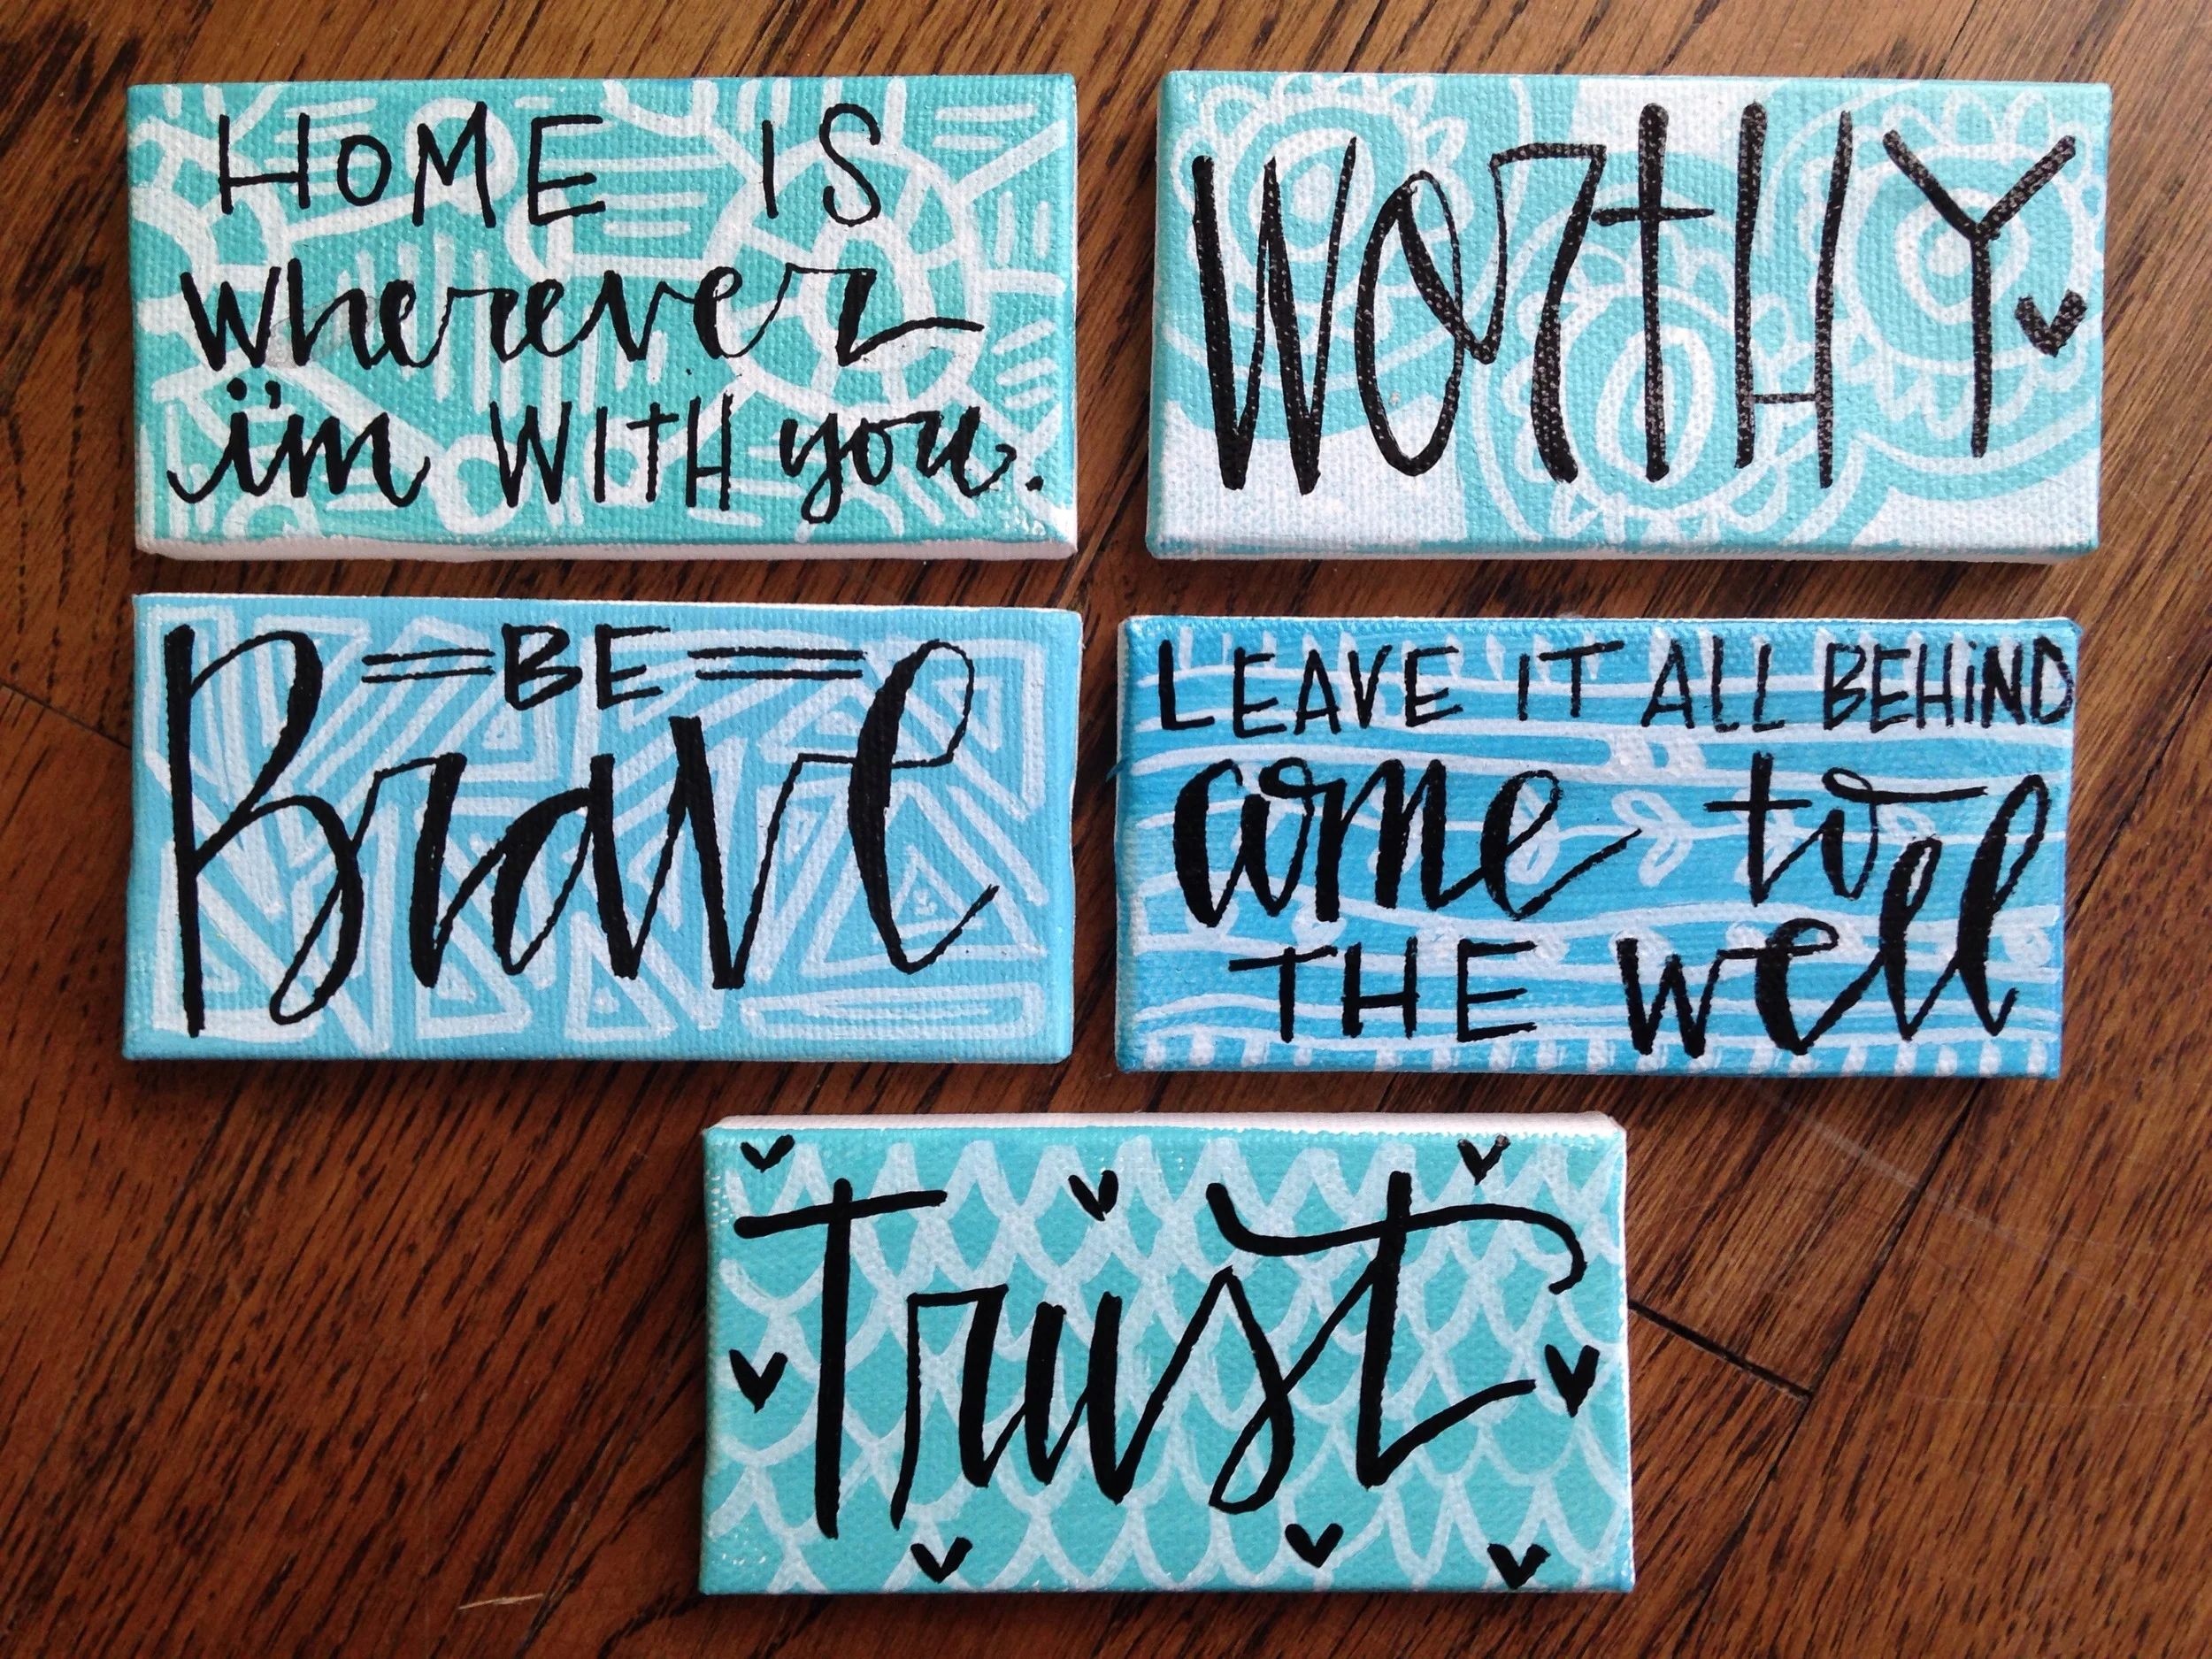 HOME IS
wherever
i'm WITH you.
WorTHY
BE
Brave
LEAVE IT ALL BEHiND
come to
THE well
Trust